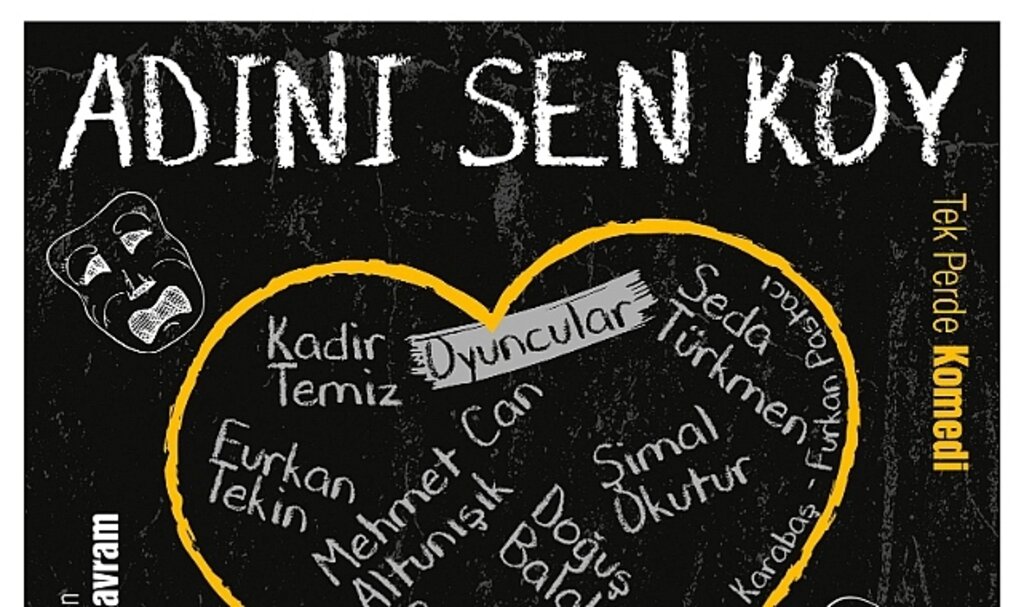 ADINI SEN KOY
Tek Perde Komedi
Oyuncular
Kadir
Temiz
Seda
Türkmen
Furkan
Tekin
Mehmet Can
Altunışık
Şimal
Okutur
Doğuş
Karabaş - Furkan Pastacı